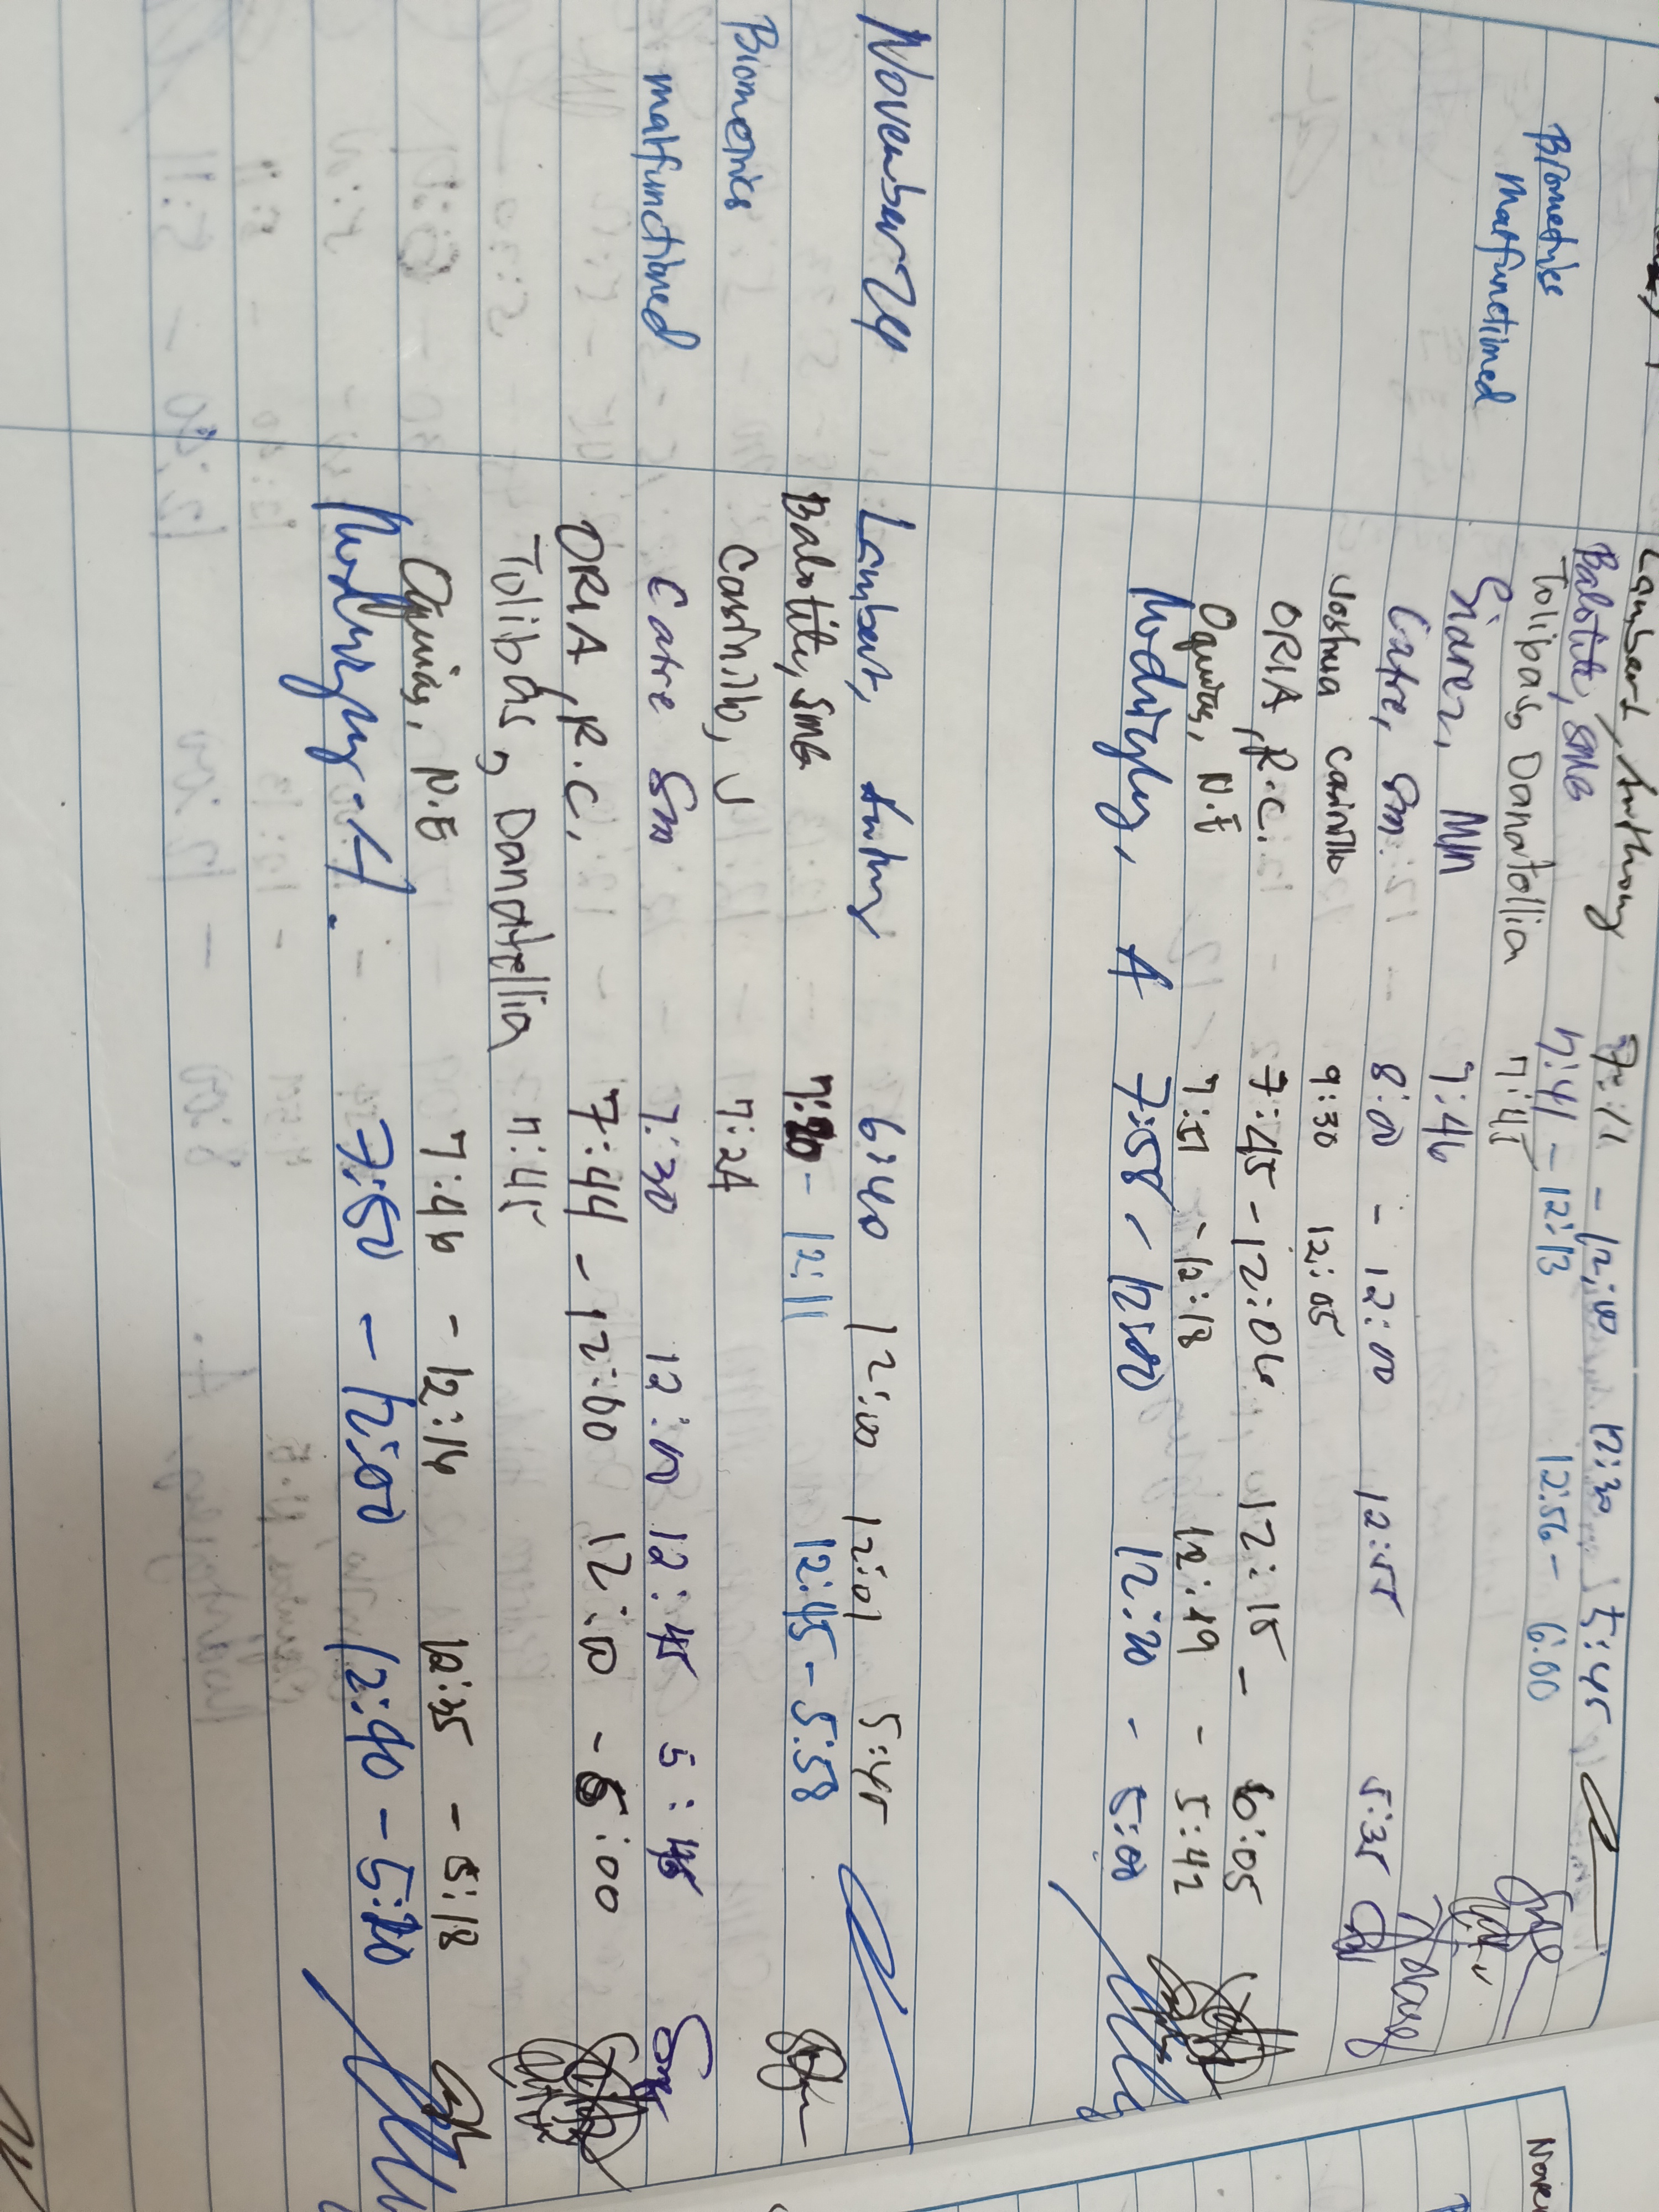 Lambert, Anthony 7:11 - 12:00 12:30 5:45
Balotite, SMG 7:41 - 12:13 12:56 - 6:00
Biometrics Tolibas, Danatellia 7:45
malfunctioned Siarez, MJM 7:46
Catre, Sm. 8:00 - 12:00 12:55 5:35
Joshua Casinillo 9:30 12:05
ORIA, R.C. 7:45 - 12:04 12:15 - 6:05
Oquias, N.E 7:51 - 12:18 12:19 - 5:42
A 7:58 - 12:00 12:20 - 5:00
November 24 Lambert, Anthony 6:40 12:00 12:01 5:45
Balotite, SMG 7:20 - 12:11 12:45 - 5:58
Biometrics Casinillo, J 7:24
malfunctioned Catre Sm 7:30 12:00 12:45 5:45
ORIA, R.C. 7:44 - 12:00 12:10 - 5:00
Tolibas, Danatellia 7:45
Oquias, N.E 7:46 - 12:16 12:35 - 5:18
7:50 - 12:00 12:40 - 5:20